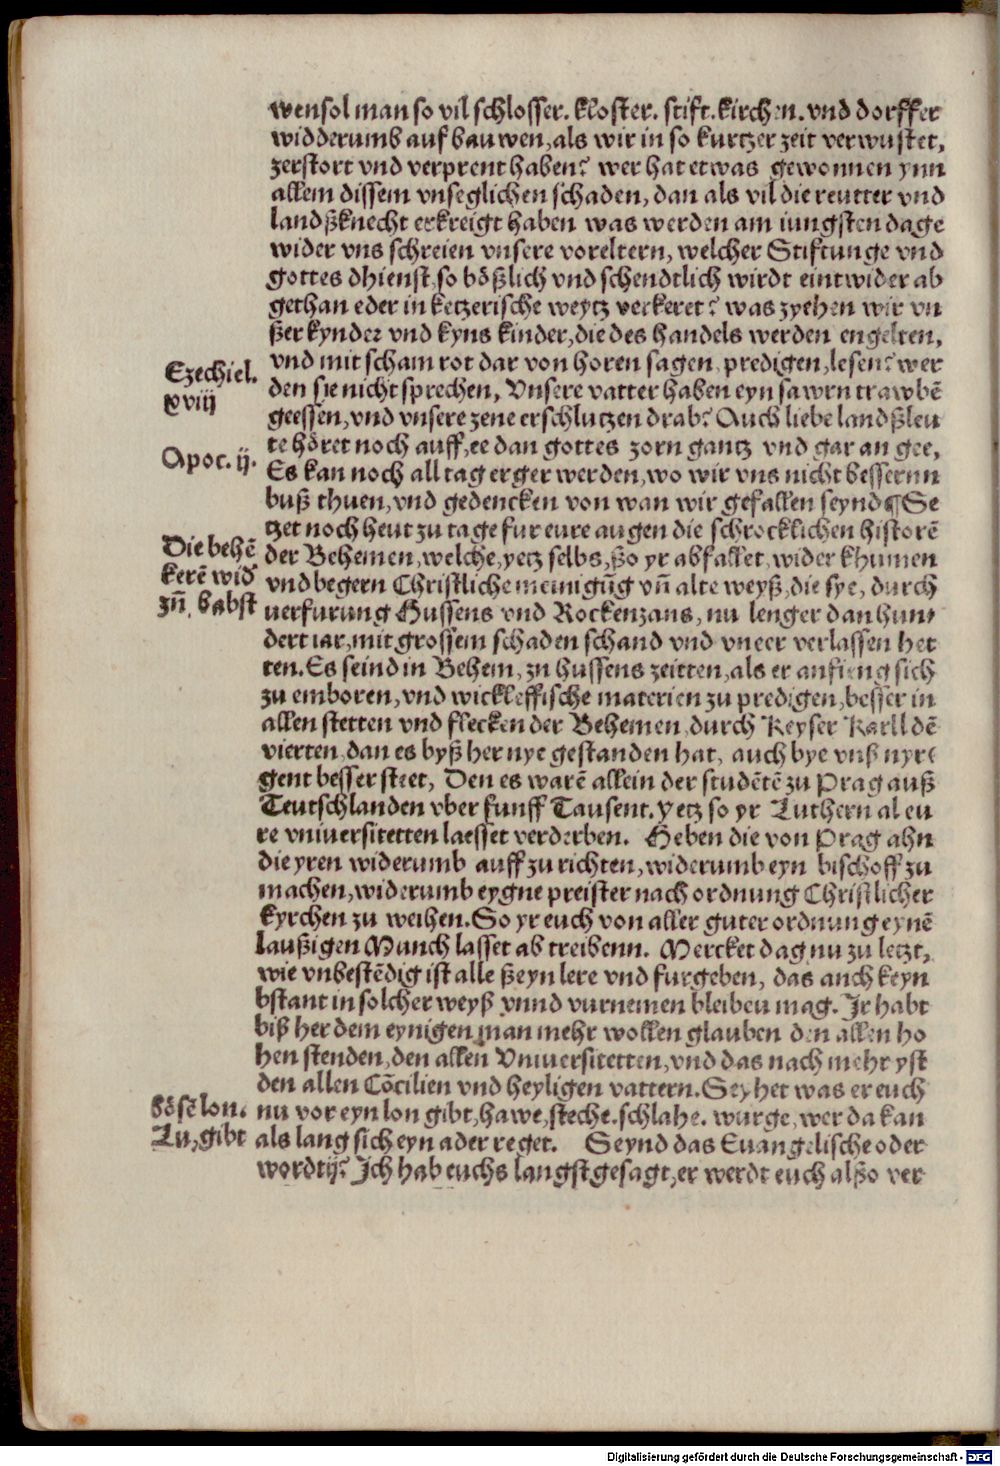 wen sol man so vil schlosser. kloster. stift. kirchen. vnd dorffer
widderumb auf bauwen, als wir in so kurtzer zeit verwustet,
zerstort vnd verprent haben? wer hat etwas gewonnen ynn
allem dissem vnseglichen schaden, dan als vil die reutter vnd
landßknecht erkreigt haben was werden am iungsten dage
wider vns schreien vnsere voreltern, welcher Stiftunge vnd
gottes dhienst, so bößlich vnd schendtlich wirdt eintwider ab
gethan eder in ketzerische weytz verkeret? was zyehen wir vn
ßer kynder vnd kyns kinder, die des handels werden engelten,
vnd mit scham rot dar von horen sagen, predigen, lesen? wer
Ezechiel.
xviij
den sie nicht sprechen, Vnsere vatter haben eyn sawrn trawbē
geessen, vnd vnsere zene erschlutzen drab? Auch liebe landßleu
te höret noch auff, ee dan gottes zorn gantz vnd gar an gee,
Apoc. ij.
Es kan noch all tag erger werden, wo wir vns nicht bessernn
buß thuen, vnd gedencken von wan wir gefallen seynd ¶ Se
tzet noch heut zu tage fur eure augen die schrocklichen historē
Die behē
kerē wid
zū. babst
der Behemen, welche, yetz selbs, ßo yr abfallet, wider khumen
vnd begern Christliche meinigūg vn̄ alte weyß, die sye, durch
uerfurung Hussens vnd Rockenzans, nu lenger dan hun
dert iar, mit grossem schaden schand vnd vneer verlassen het
ten. Es seind in Behem, zu hussens zeitten, als er anfieng sich
zu emboren, vnd wickleffische materien zu predigen, besser in
allen stetten vnd flecken der Behemen, durch Keyser Karll dē
vierten, dan es byß her nye gestanden hat, auch bye vnß nyr
gent besser steet, Den es warē allein der studētē zu Prag auß
Teutschlanden vber funff Tausent. yetz so yr Luthern al eu
re vniuersitetten laesset verderben. Heben die von Prag ahn
die yren widerumb auff zu richten, widerumb eyn bischoff zu
machen, widerumb eygne preister nach ordnung Christlicher
kyrchen zu weihen. So yr euch von aller guter ordnung eynē
laußigen Munch lasset ab treibenn. Mercket dag nu zu letzt,
wie vnbestēdig ist alle ßeyn lere vnd furgeben, das auch keyn
bstant in solcher weyß vnnd vurnemen bleiben mag. Ir habt
biß her dem eynigen man mehr wollen glauben den allen ho
hen stenden, den allen Vniuersitetten, vnd das nach mehr yst
den allen Cōcilien vnd heyligen vattern. Seyhet was er euch
bösē lon.
Lu, gibt
nu vor eyn lon gibt, hawe, steche. schlahe. wurge, wer da kan
als lang sich eyn ader reget. Seynd das Euangelische oder
wordtij? Ich hab euchs langst gesagt, er werdt euch alßo ver
Digitalisierung gefördert durch die Deutsche Forschungsgemeinschaft - DFG